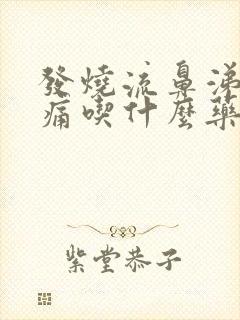 發燒流鼻涕
痛喫什麼藥
紫堂恭子